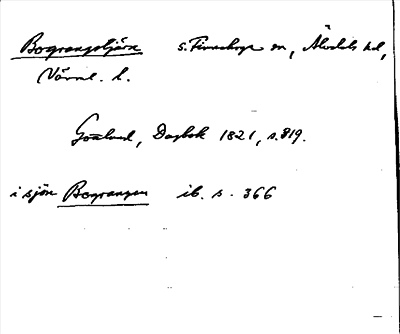 Bograngstjärn s. Finnskoga sn, Älvdals hd,
Värml. l.
Gottlund, Dagbok 1821, s. 819.
i sjön Bograngen ib. s. 366